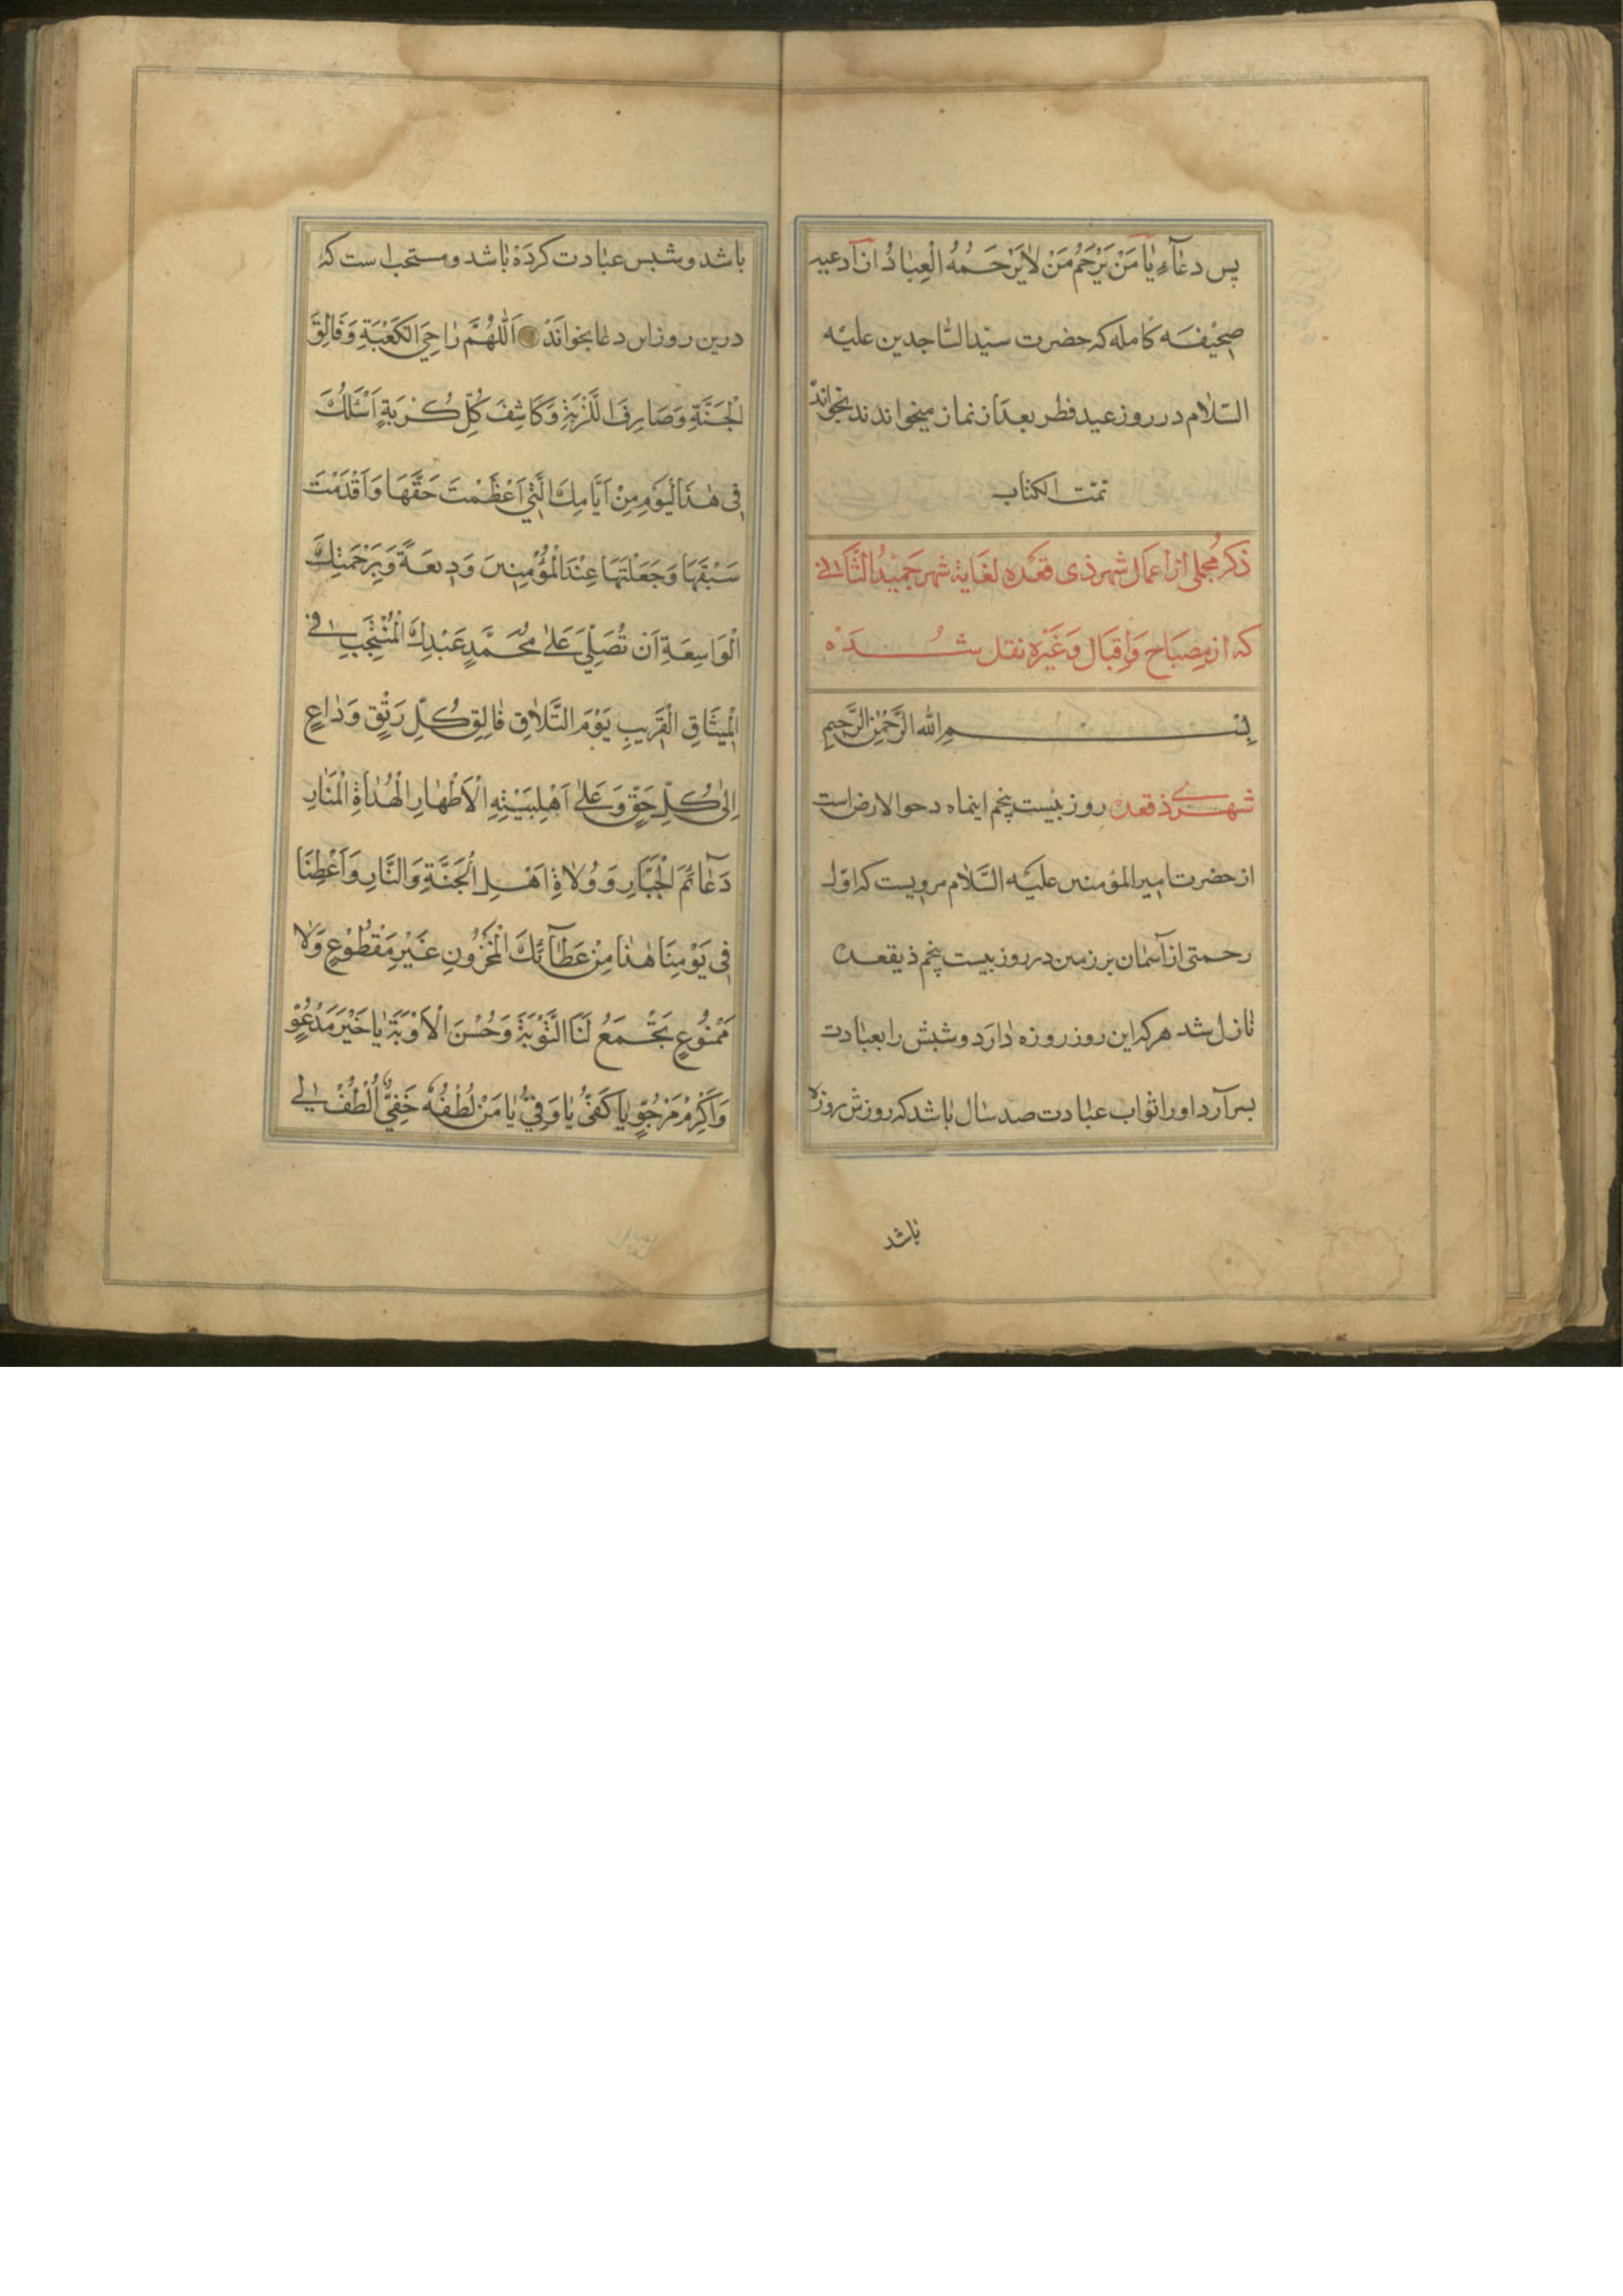 پس دعٰآءِ یٰا مَنْ یَرْحَمُ مَنْ لاٰیَرْحَمُهُ الْعِبٰادُ از ادعیه
صحیفه کامله که حضرت سیّد السّاجدین علیه
السّلام در روز عید فطر بعد از نماز میخواندند بخواند
تمّت الکتاب
ذکر مجملی از اعمال شهر ذی قعده لغایة شهر جمید الثّانی
که از مصباح و اقبال و غیره نقل شده
بِسْمِ الله الرَّحْمٰنِ الرَّحِیمِ
شهر ذی قعده روز بیست پنجم اینماه دحو الارض است
از حضرت امیر المؤمنین علیه السّلام مرویست که اوّل
رحمتی از آسمٰان بر زمین در روز بیست پنجم ذیقعده
نازل شد هرکه این روز روزه دٰارد و شبش را بعبٰادت
بسر آرد اورا ثواب عبٰادت صد سٰال بٰاشد که روزش روزه
بٰاشد
باشد و شبس عبٰادت کرده بٰاشد و مستحب است که
درین روز این دعٰا بخواند اَللّٰهُمَّ دٰاحِیَ الکَعْبَةِ وَ فَالِقَ
الْجَنَّةِ وَ صَارِفَ اللَّزْبَةِ وَ کَاشِفَ کُلِّ کُرْبَةٍ اَسْئَلُكَ
فِی هٰذَا الْیَوْمِ مِنْ اَیَّامِكَ الَّتِی اَعْظَمْتَ حَقَّهَا وَ اَقْدَمْتَ
سَبْقَهَا وَ جَعَلْتَهَا عِنْدَ الْمُؤْمِنِینَ وَدِیعَةً وَ بِرَحْمَتِكَ
الْوَاسِعَةِ اَن تُصَلِّیَ عَلٰی مُحَمَّدٍ عَبْدِكَ الْمُنْتَجَبِ فِی
الْمِیثَاقِ الْقَرِیبِ یَوْمَ التَّلاٰقِ فٰالِقِ کُلِّ رَتْقٍ وَ دٰاعٍ
اِلٰی کُلِّ حَقٍّ وَ عَلٰی اَهْلِبَیْتِهِ الْاَطْهٰارِ الْهُدٰاةِ الْمَنٰارِ
دَعٰآئِمَ الْجَبّٰارِ وَ وُلاٰةِ اَهْلِ الْجَنَّةِ وَ النَّارِ وَ اَعْطِنَا
فِی یَوْمِنَا هٰذٰا مِنْ عَطٰآئِكَ الْمَخْزُونِ غَیْرِ مَقْطُوعٍ وَلاٰ
مَمْنُوعٍ تَجْمَعُ لَنَا التَّوْبَةَ وَ حُسْنَ الْاَوْبَةِ یٰا خَیْرَ مَدْعُوٍّ
وَ اَکْرَمَ مَرْجُوٍّ یٰا کَفِیُّ یٰا وَفِیُّ یٰا مَنْ لُطْفُهُ خَفِیٌّ اُلْطُفْ لِی